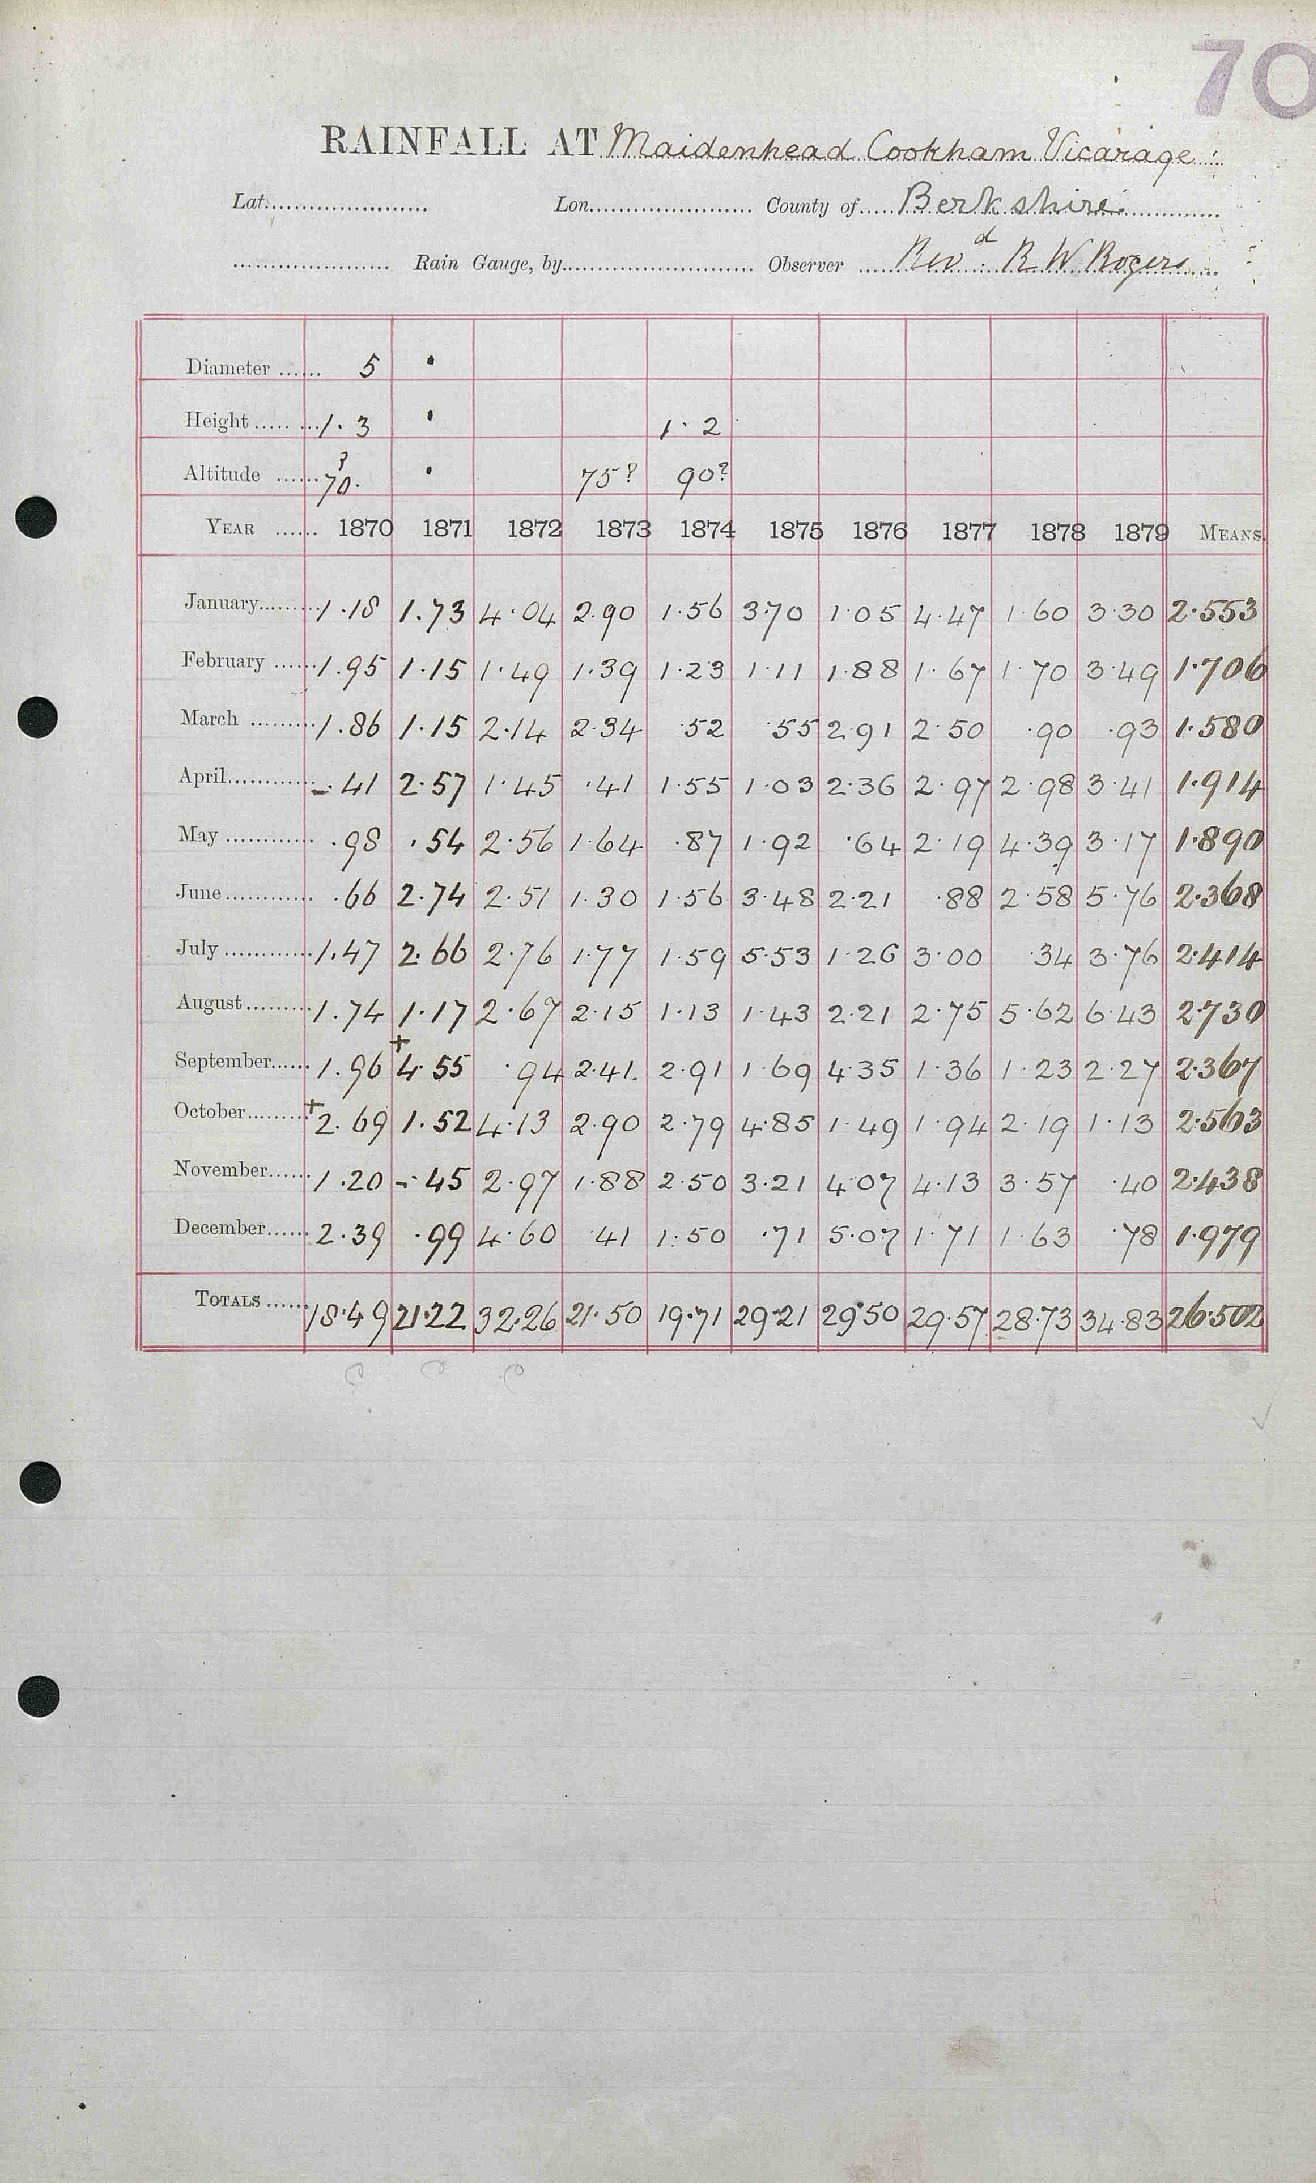 70
RAINFALL AT Maidenhead Cookham Vicarage
Lat. Lon. County of Berkshire
Rain Gauge, by Observer Revd R W Rogers
Diameter 5 .
Height 1.3 . 1.2
Altitude 70.? . 75? 90?
YEAR 1870 1871 1872 1873 1874 1875 1876 1877 1878 1879 MEANS.
January 1.18 1.73 4.04 2.90 1.56 3.70 1.05 4.47 1.60 3.30 2.553
February 1.95 1.15 1.49 1.39 1.23 1.11 1.88 1.67 1.70 3.49 1.706
March 1.86 1.15 2.14 2.34 .52 .55 2.91 2.50 .90 .93 1.580
April -.41 2.57 1.45 .41 1.55 1.03 2.36 2.97 2.98 3.41 1.914
May .98 .54 2.56 1.64 .87 1.92 .64 2.19 4.39 3.17 1.890
June .66 2.74 2.51 1.30 1.56 3.48 2.21 .88 2.58 5.76 2.368
July 1.47 2.66 2.76 1.77 1.59 5.53 1.26 3.00 .34 3.76 2.414
August 1.74 1.17 2.67 2.15 1.13 1.43 2.21 2.75 5.62 6.43 2.730
September 1.96 +4.55 .94 2.41. 2.91 1.69 4.35 1.36 1.23 2.27 2.367
October +2.69 1.52 4.13 2.90 2.79 4.85 1.49 1.94 2.19 1.13 2.563
November 1.20 -.45 2.97 1.88 2.50 3.21 4.07 4.13 3.57 .40 2.438
December 2.39 .99 4.60 .41 1.50 .71 5.07 1.71 1.63 .78 1.979
TOTALS 18.49 21.22 32.26 21.50 19.71 29.21 29.50 29.57 28.73 34.83 26.502